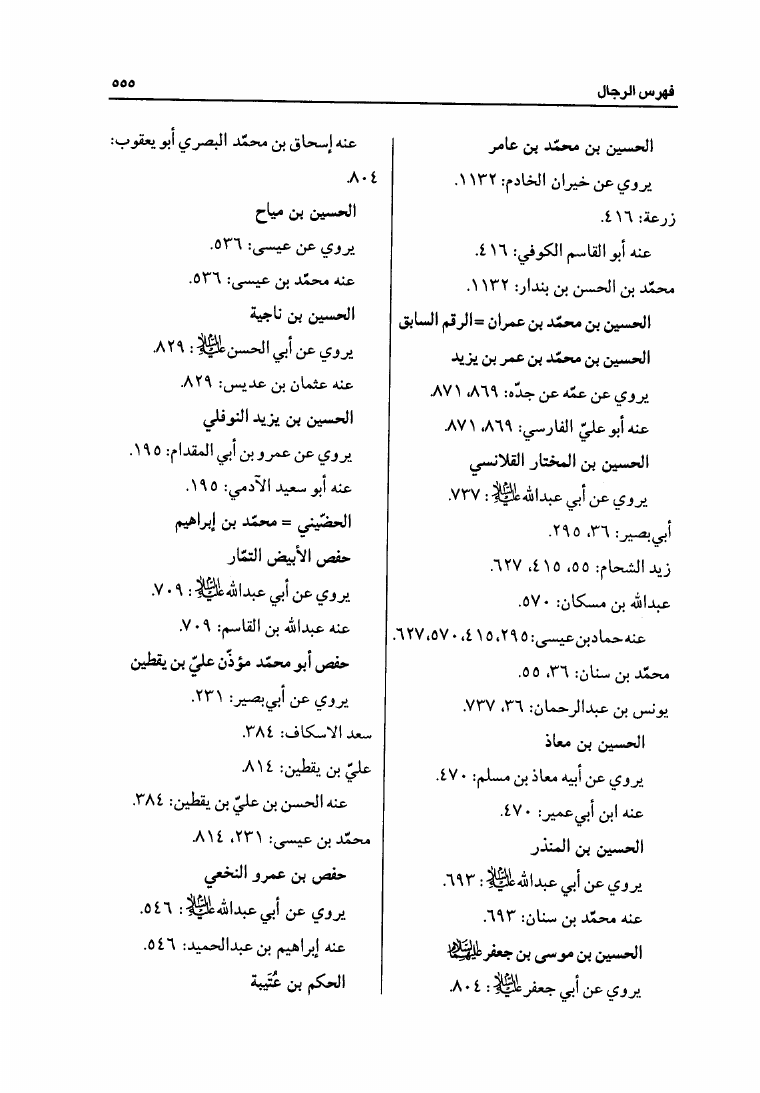 فهرس الرجال
٥٥٥
الحسين بن محمّد بن عامر
يروي عن خيران الخادم: ١١٣٢.
زرعة: ٤١٦.
عنه أبو القاسم الكوفي: ٤١٦.
محمّد بن الحسن بن بندار: ١١٣٢.
الحسين بن محمّد بن عمران =الرقم السابق
الحسين بن محمّد بن عمر بن يزيد
يروي عن عمّه عن جدّه: ٨٦٩، ٨٧١.
عنه أبو عليّ الفارسي: ٨٦٩، ٨٧١.
الحسين بن المختار القلانسي
يروي عن أبي عبدالله عليه السلام: ٧٣٧.
أبي‌بصير: ٣٦، ٢٩٥.
زيد الشحام: ٥٥، ٤١٥، ٦٢٧.
عبدالله بن مسكان: ٥٧٠.
عنه حماد بن عيسى: ٢٩٥، ٤١٥، ٥٧٠، ٦٢٧.
محمّد بن سنان: ٣٦، ٥٥.
يونس بن عبدالرحمان: ٣٦، ٧٣٧.
الحسين بن معاذ
يروي عن أبيه معاذ بن مسلم: ٤٧٠.
عنه ابن أبي‌عمير: ٤٧٠.
الحسين بن المنذر
يروي عن أبي عبدالله عليه السلام: ٦٩٣.
عنه محمّد بن سنان: ٦٩٣.
الحسين بن موسى بن جعفر عليهما السلام
يروي عن أبي جعفر عليه السلام: ٨٠٤.
عنه إسحاق بن محمّد البصري أبو يعقوب:
٨٠٤.
الحسين بن مياح
يروي عن عيسى: ٥٣٦.
عنه محمّد بن عيسى: ٥٣٦.
الحسين بن ناجية
يروي عن أبي الحسن عليه السلام: ٨٢٩.
عنه عثمان بن عديس: ٨٢٩.
الحسين بن يزيد النوفلي
يروي عن عمرو بن أبي المقدام: ١٩٥.
عنه أبو سعيد الآدمي: ١٩٥.
الحضّيني = محمّد بن إبراهيم
حفص الأبيض التمّار
يروي عن أبي عبدالله عليه السلام: ٧٠٩.
عنه عبدالله بن القاسم: ٧٠٩.
حفص أبو محمّد مؤذّن عليّ بن يقطين
يروي عن أبي‌بصير: ٢٣١.
سعد الاسكاف: ٣٨٤.
عليّ بن يقطين: ٨١٤.
عنه الحسن بن عليّ بن يقطين: ٣٨٤.
محمّد بن عيسى: ٢٣١، ٨١٤.
حفص بن عمرو النخعي
يروي عن أبي عبدالله عليه السلام: ٥٤٦.
عنه إبراهيم بن عبدالحميد: ٥٤٦.
الحكم بن عُتَيبة